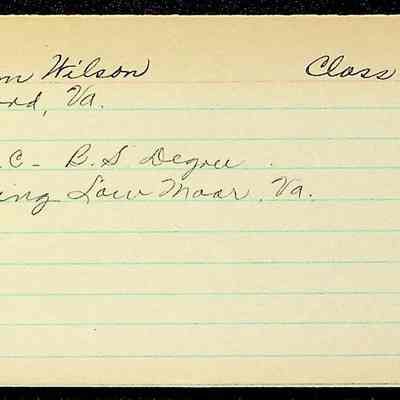 Wilson Class
ord, Va.
.C- B.S Degree.
ing Low Moor, Va.